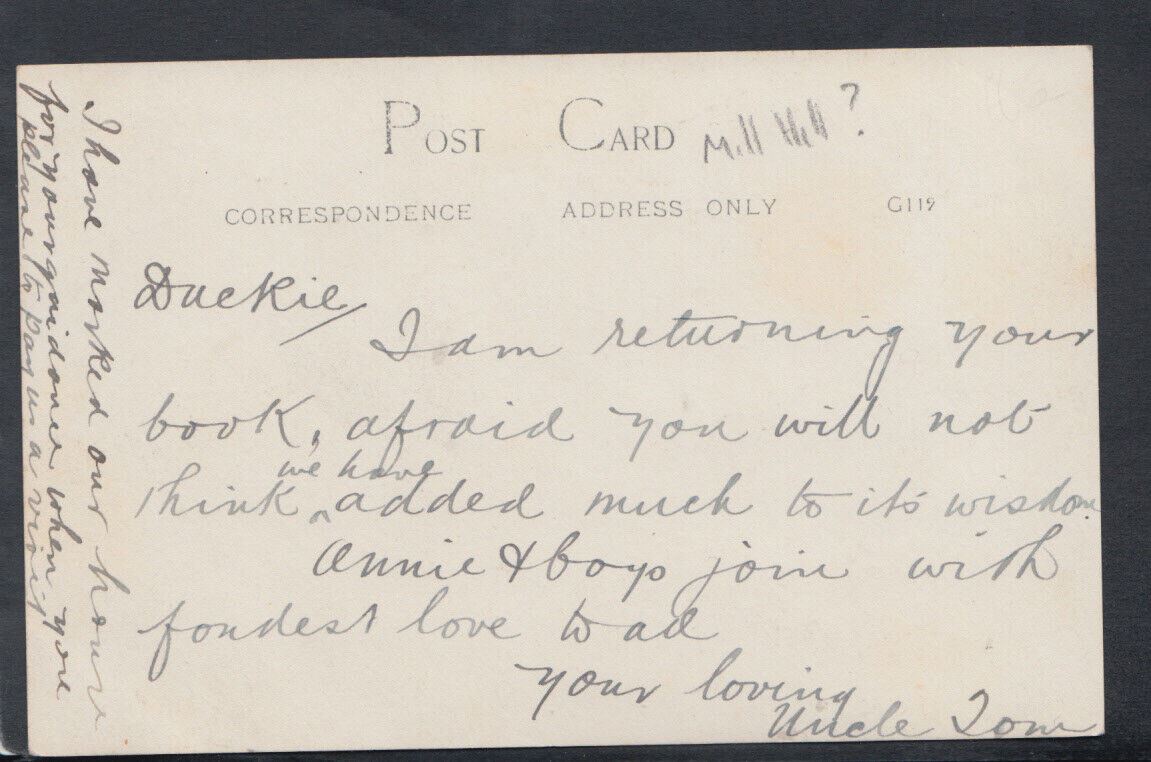 POST CARD Mill Hill?
CORRESPONDENCE ADDRESS ONLY G119
Duckie/
I am returning your
book, afraid you will not
think ^ we have added much to it's wisdom
Annie & boys join with
fondest love to all
your loving
Uncle Tom
I have marked our house
for your guidance when you
please to pay us a visit